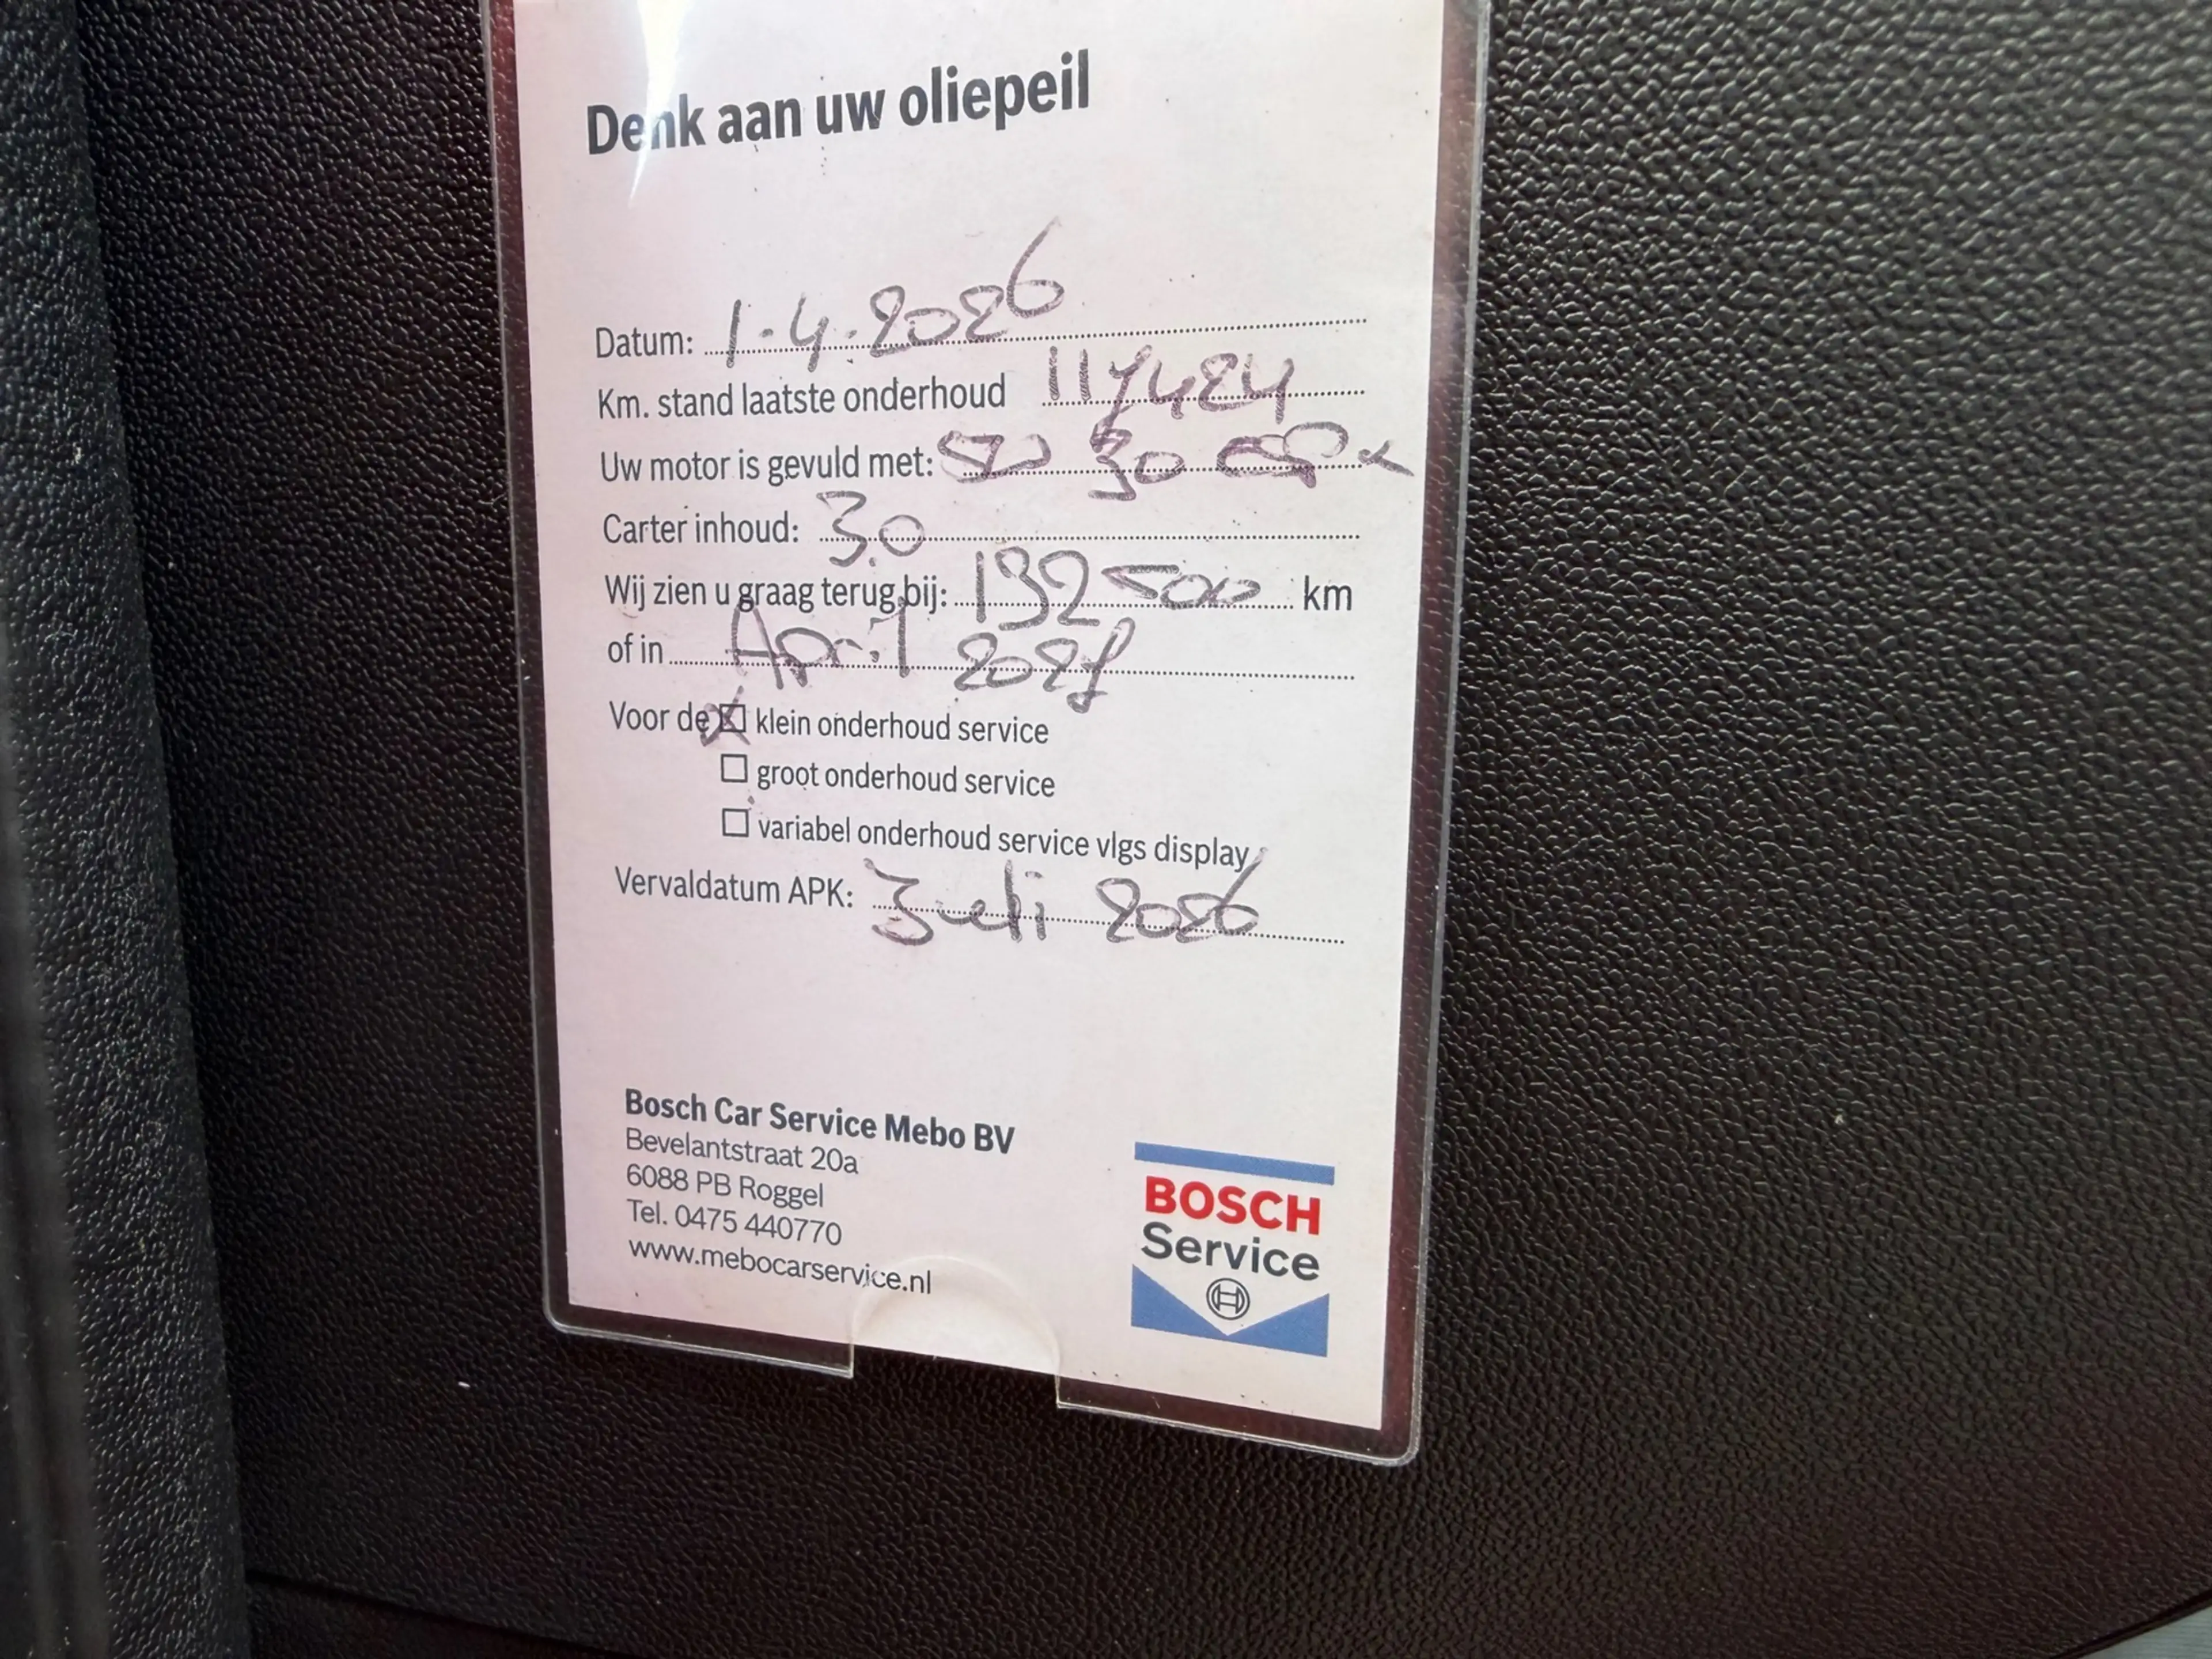 Denk aan uw oliepeil
Datum: 1.4.2026
Km. stand laatste onderhoud 117424
Uw motor is gevuld met: 5W 30
Carter inhoud: 3.0
Wij zien u graag terug bij: 132500 km
of in April 2027
Voor de X klein onderhoud service
groot onderhoud service
variabel onderhoud service vlgs display
Vervaldatum APK: Juli 2026
Bosch Car Service Mebo BV
Bevelantstraat 20a
6088 PB Roggel
Tel. 0475 440770
www.mebocarservice.nl
BOSCH
Service